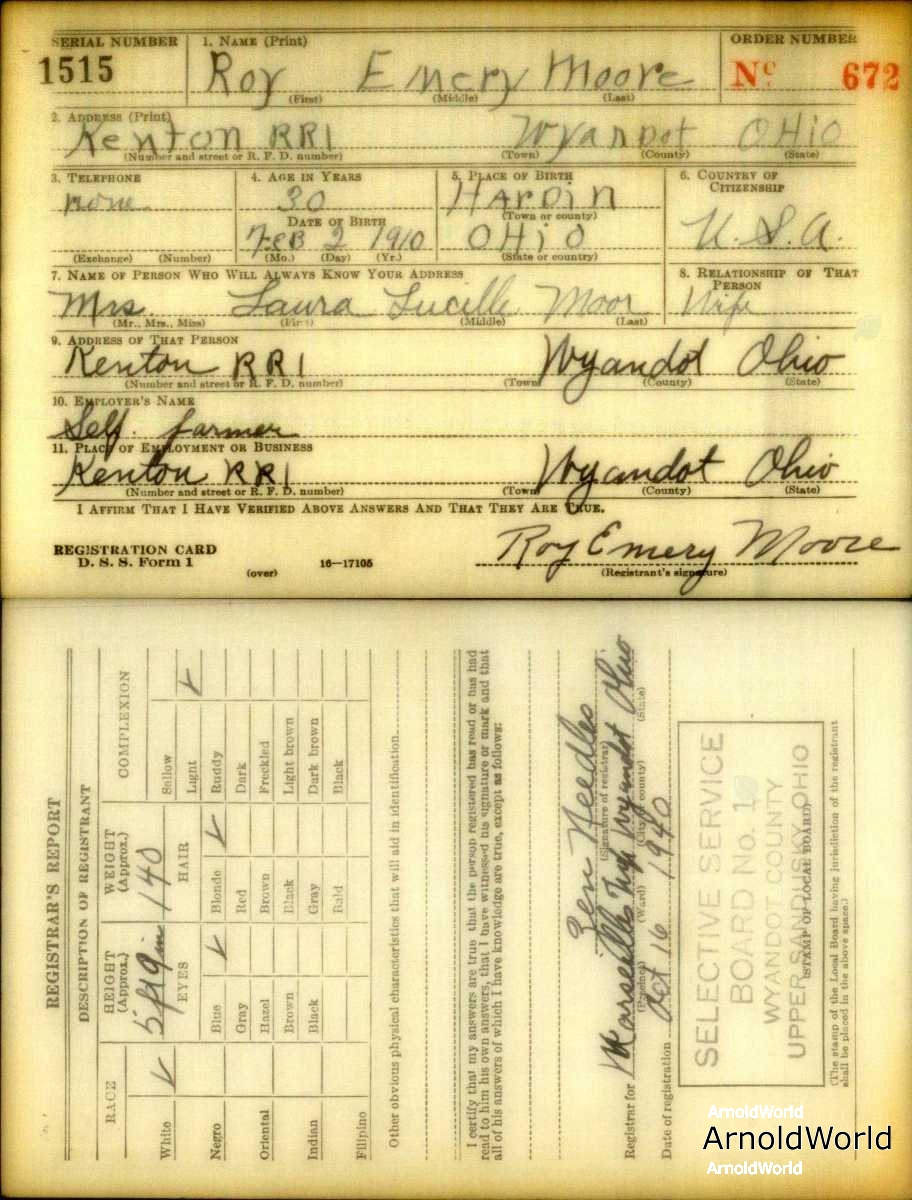 SERIAL NUMBER 1. NAME (Print) ORDER NUMBER
1515 Roy Emery Moore No 672
(First) (Middle) (Last)
2. ADDRESS (Print)
Kenton RR1 Wyandot OHiO
(Number and street or R. F. D. number) (Town) (County) (State)
3. TELEPHONE 4. AGE IN YEARS 5. PLACE OF BIRTH 6. COUNTRY OF CITIZENSHIP
none 30 HARDiN
(Town or county)
DATE OF BIRTH
Feb 2 1910 OHiO U.S.A.
(Exchange) (Number) (Mo.) (Day) (Yr.) (State or country)
7. NAME OF PERSON WHO WILL ALWAYS KNOW YOUR ADDRESS 8. RELATIONSHIP OF THAT PERSON
Mrs. Laura Lucille Moor Wife
(Mr., Mrs., Miss) (First) (Middle) (Last)
9. ADDRESS OF THAT PERSON
Kenton RR1 Wyandot Ohio
(Number and street or R. F. D. number) (Town) (County) (State)
10. EMPLOYER'S NAME
Self. farmer
11. PLACE OF EMPLOYMENT OR BUSINESS
Kenton RR1 Wyandot Ohio
(Number and street or R. F. D. number) (Town) (County) (State)
I AFFIRM THAT I HAVE VERIFIED ABOVE ANSWERS AND THAT THEY ARE TRUE.
REGISTRATION CARD
D. S. S. Form 1 (over) 16—17105
Roy Emery Moore
(Registrant's signature)
REGISTRAR'S REPORT
DESCRIPTION OF REGISTRANT
RACE HEIGHT (Approx.) WEIGHT (Approx.) COMPLEXION
5 ft 9 in 140
EYES HAIR
White ✓
Negro
Oriental
Indian
Filipino
Blue ✓
Gray
Hazel
Brown
Black
Blonde ✓
Red
Brown
Black
Gray
Bald
Sallow
Light ✓
Ruddy
Dark
Freckled
Light brown
Dark brown
Black
Other obvious physical characteristics that will aid in identification
I certify that my answers are true; that the person registered has read or has had
read to him his own answers; that I have witnessed his signature or mark and that
all of his answers of which I have knowledge are true, except as follows:
Zen Needles
(Signature of registrar)
Registrar for Marseilles Twp Wyandot Ohio
(Precinct) (Ward) (City or county) (State)
Date of registration Oct 16 1940
SELECTIVE SERVICE
BOARD No. 1
WYANDOT COUNTY
UPPER SANDUSKY, OHIO
(STAMP OF LOCAL BOARD)
(The stamp of the Local Board having jurisdiction of the registrant
shall be placed in the above space.)
ArnoldWorld
ArnoldWorld
ArnoldWorld